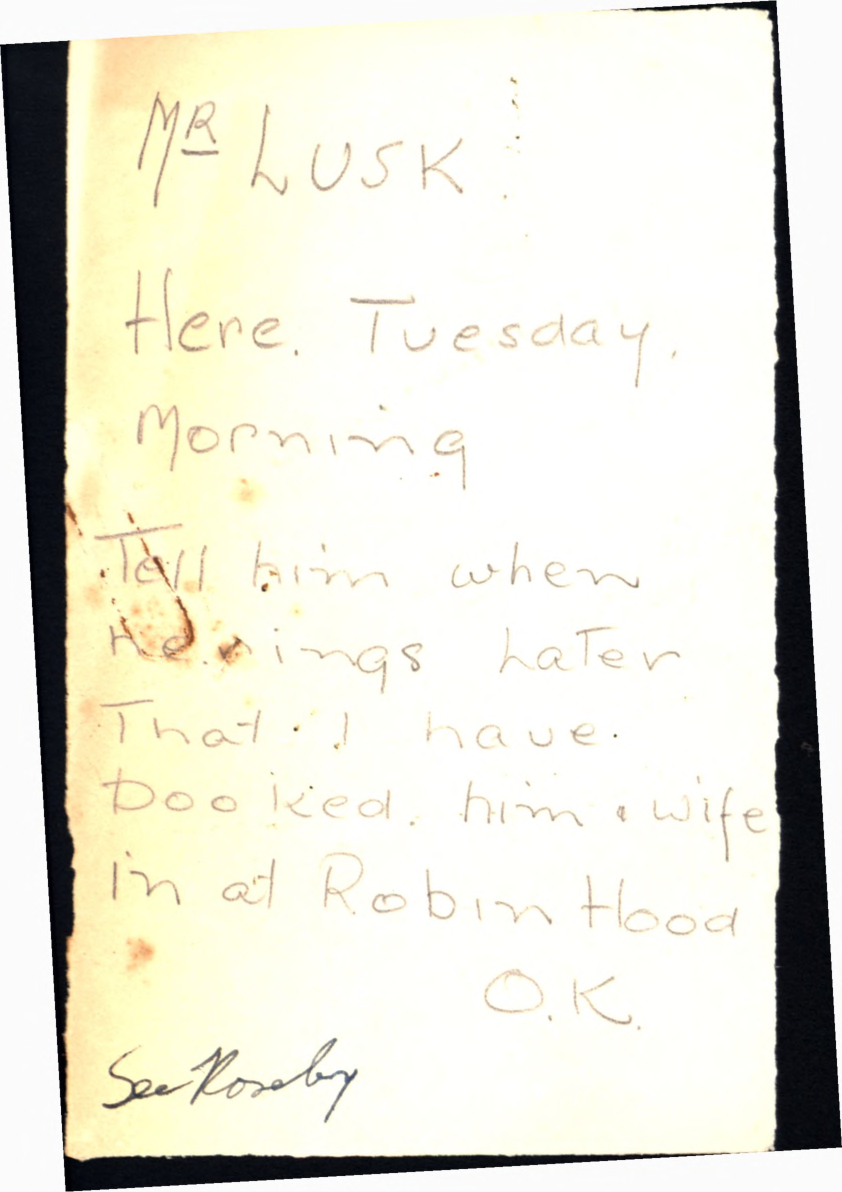 MR LUSK.
Here. Tuesday.
Morning
Tell him when
he.rings Later
That I have.
booked. him & wife
in at Robin Hood
O.K.
See Roseby